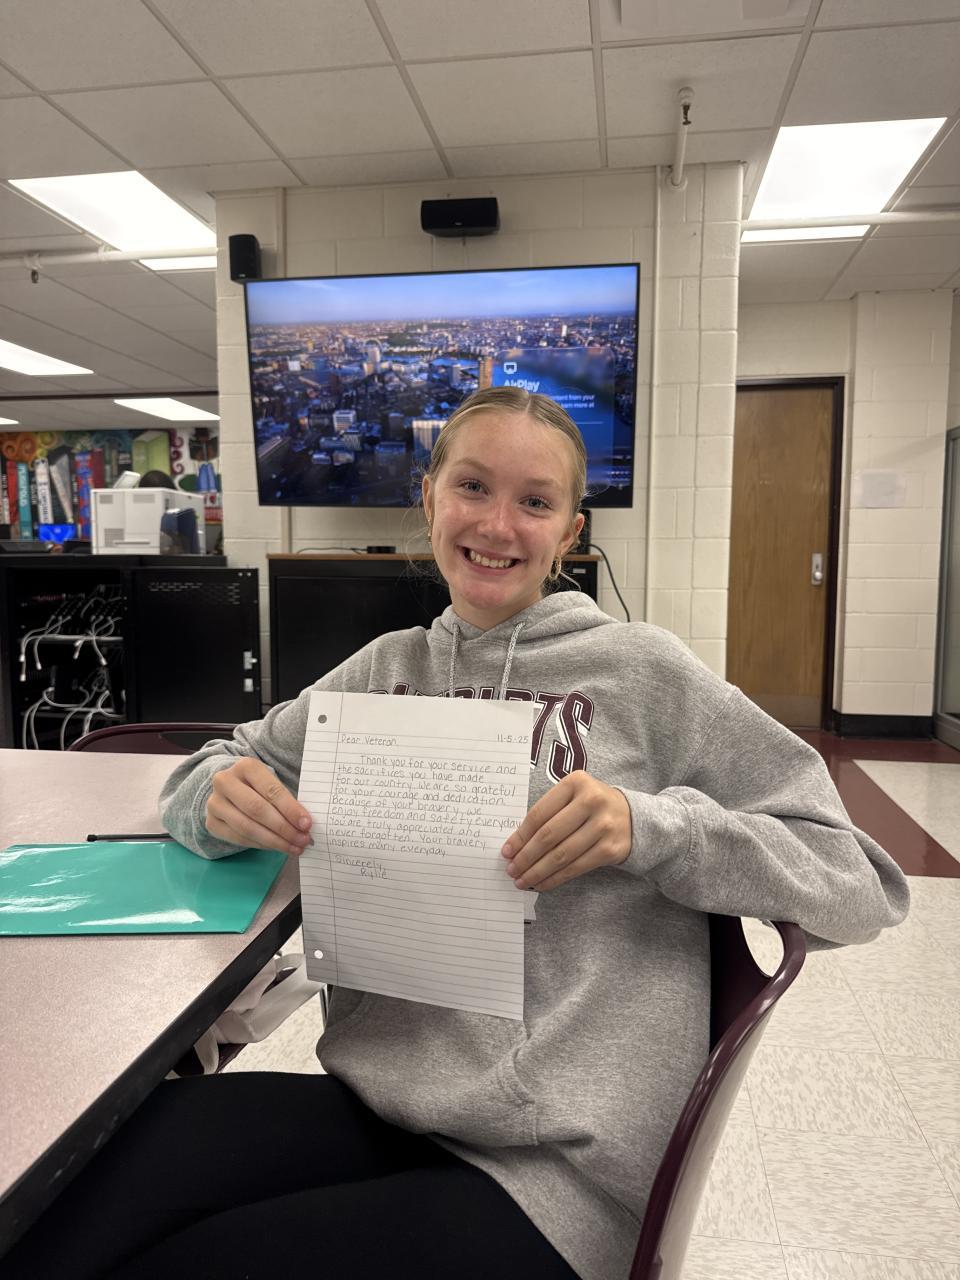 AirPlay
Dear Veteran,
11-5-25
Thank you for your service and
the sacrifices you have made
for our country. We are so grateful
for your courage and dedication.
Because of your bravery, we
enjoy freedom and safety everyday.
You are truly appreciated and
never forgotten. Your bravery
inspires many everyday.
Sincerely,
Rylie